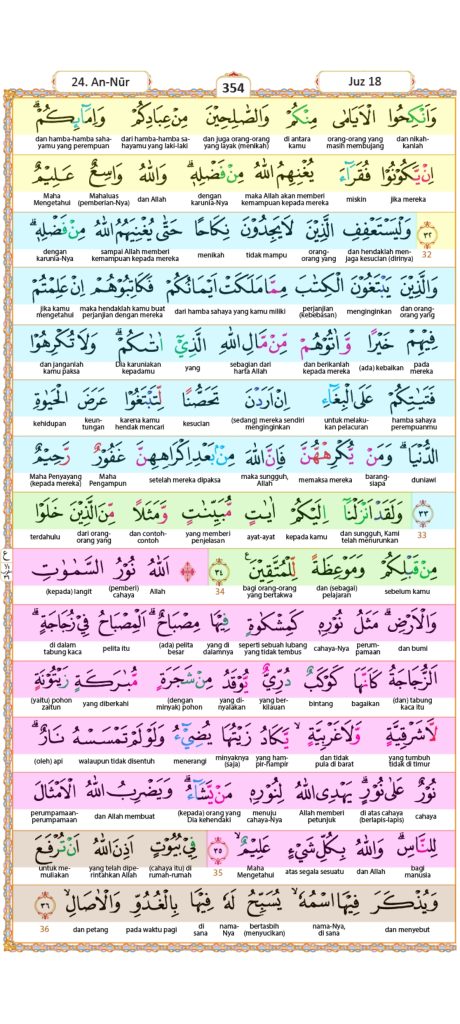 24. An-Nūr
354
Juz 18
وَاَنْكِحُوا الْاَيَامٰى مِنْكُمْ وَالصّٰلِحِيْنَ مِنْ عِبَادِكُمْ وَاِمَاۤىِٕكُمْۗ
dan nikah-kanlah orang-orang yang masih membujang di antara kamu dan juga orang-orang yang layak (menikah) dari hamba-hamba sa-hayamu yang laki-laki dan hamba-hamba saha-yamu yang perempuan
اِنْ يَّكُوْنُوْا فُقَرَاۤءَ يُغْنِهِمُ اللّٰهُ مِنْ فَضْلِهٖۗ وَاللّٰهُ وَاسِعٌ عَلِيْمٌ
jika mereka miskin maka Allah akan memberi kemampuan kepada mereka dengan karunia-Nya dan Allah Mahaluas (pemberian-Nya) Maha Mengetahui
٣٢ وَلْيَسْتَعْفِفِ الَّذِيْنَ لَا يَجِدُوْنَ نِكَاحًا حَتّٰى يُغْنِيَهُمُ اللّٰهُ مِنْ فَضْلِهٖۗ
32 dan hendaklah men-jaga kesucian (dirinya) orang-orang yang tidak mampu menikah sampai Allah memberi kemampuan kepada mereka dengan karunia-Nya
وَالَّذِيْنَ يَبْتَغُوْنَ الْكِتٰبَ مِمَّا مَلَكَتْ اَيْمَانُكُمْ فَكَاتِبُوْهُمْ اِنْ عَلِمْتُمْ
dan orang-orang yang menginginkan perjanjian (kebebasan) dari hamba sahaya yang kamu miliki maka hendaklah kamu buat perjanjian dengan mereka jika kamu mengetahui
فِيْهِمْ خَيْرًا وَّاٰتُوْهُمْ مِّنْ مَّالِ اللّٰهِ الَّذِيْٓ اٰتٰىكُمْۗ وَلَا تُكْرِهُوْا
pada mereka (ada) kebaikan dan berikanlah kepada mereka sebagian dari harta Allah yang Dia karuniakan kepadamu dan janganlah kamu paksa
فَتَيٰتِكُمْ عَلَى الْبِغَاۤءِ اِنْ اَرَدْنَ تَحَصُّنًا لِّتَبْتَغُوْا عَرَضَ الْحَيٰوةِ
hamba sahaya perempuanmu untuk melaku-kan pelacuran (sedang) mereka sendiri menginginkan kesucian karena kamu hendak mencari keun-tungan kehidupan
الدُّنْيَاۗ وَمَنْ يُّكْرِهْهُّنَّ فَاِنَّ اللّٰهَ مِنْۢ بَعْدِ اِكْرَاهِهِنَّ غَفُوْرٌ رَّحِيْمٌ
duniawi barang-siapa memaksa mereka maka sungguh, Allah setelah mereka dipaksa Maha Pengampun Maha Penyayang (kepada mereka)
٣٣ وَلَقَدْ اَنْزَلْنَآ اِلَيْكُمْ اٰيٰتٍ مُّبَيِّنٰتٍ وَّمَثَلًا مِّنَ الَّذِيْنَ خَلَوْا
33 dan sungguh, Kami telah menurunkan kepada kamu ayat-ayat yang memberi penjelasan dan contoh-contoh dari orang-orang yang terdahulu
مِنْ قَبْلِكُمْ وَمَوْعِظَةً لِّلْمُتَّقِيْنَ ࣖ ٣٤ اَللّٰهُ نُوْرُ السَّمٰوٰتِ
sebelum kamu dan (sebagai) pelajaran bagi orang-orang yang bertakwa 34 Allah (pemberi) cahaya (kepada) langit
وَالْاَرْضِۗ مَثَلُ نُوْرِهٖ كَمِشْكٰوةٍ فِيْهَا مِصْبَاحٌۗ اَلْمِصْبَاحُ فِيْ زُجَاجَةٍۗ
dan bumi perum-pamaan cahaya-Nya seperti sebuah lubang yang tidak tembus yang di dalamnya (ada) pelita besar pelita itu di dalam tabung kaca
اَلزُّجَاجَةُ كَاَنَّهَا كَوْكَبٌ دُرِّيٌّ يُّوْقَدُ مِنْ شَجَرَةٍ مُّبٰرَكَةٍ زَيْتُوْنَةٍ
(dan) tabung kaca itu bagaikan bintang yang ber-kilauan yang di-nyalakan (dengan minyak) pohon yang diberkahi (yaitu) pohon zaitun
لَّا شَرْقِيَّةٍ وَّلَا غَرْبِيَّةٍۙ يَّكَادُ زَيْتُهَا يُضِيْۤءُ وَلَوْ لَمْ تَمْسَسْهُ نَارٌۗ
yang tumbuh tidak di timur dan tidak pula di barat yang ham-pir-hampir minyaknya (saja) menerangi walaupun tidak disentuh (oleh) api
نُوْرٌ عَلٰى نُوْرٍۗ يَهْدِى اللّٰهُ لِنُوْرِهٖ مَنْ يَّشَاۤءُۗ وَيَضْرِبُ اللّٰهُ الْاَمْثَالَ
cahaya di atas cahaya (berlapis-lapis) Allah memberi petunjuk menuju cahaya-Nya (kepada) orang yang Dia kehendaki dan Allah membuat perumpamaan-perumpamaan
لِلنَّاسِۗ وَاللّٰهُ بِكُلِّ شَيْءٍ عَلِيْمٌۙ ٣٥ فِيْ بُيُوْتٍ اَذِنَ اللّٰهُ اَنْ تُرْفَعَ
bagi manusia dan Allah atas segala sesuatu Maha Mengetahui 35 (cahaya itu) di rumah-rumah yang telah dipe-rintahkan Allah untuk me-muliakan
وَيُذْكَرَ فِيْهَا اسْمُهٗۙ يُسَبِّحُ لَهٗ فِيْهَا بِالْغُدُوِّ وَالْاٰصَالِۙ ٣٦
dan menyebut nama-Nya, di sana bertasbih (menyucikan) nama-Nya di sana pada waktu pagi dan petang 36